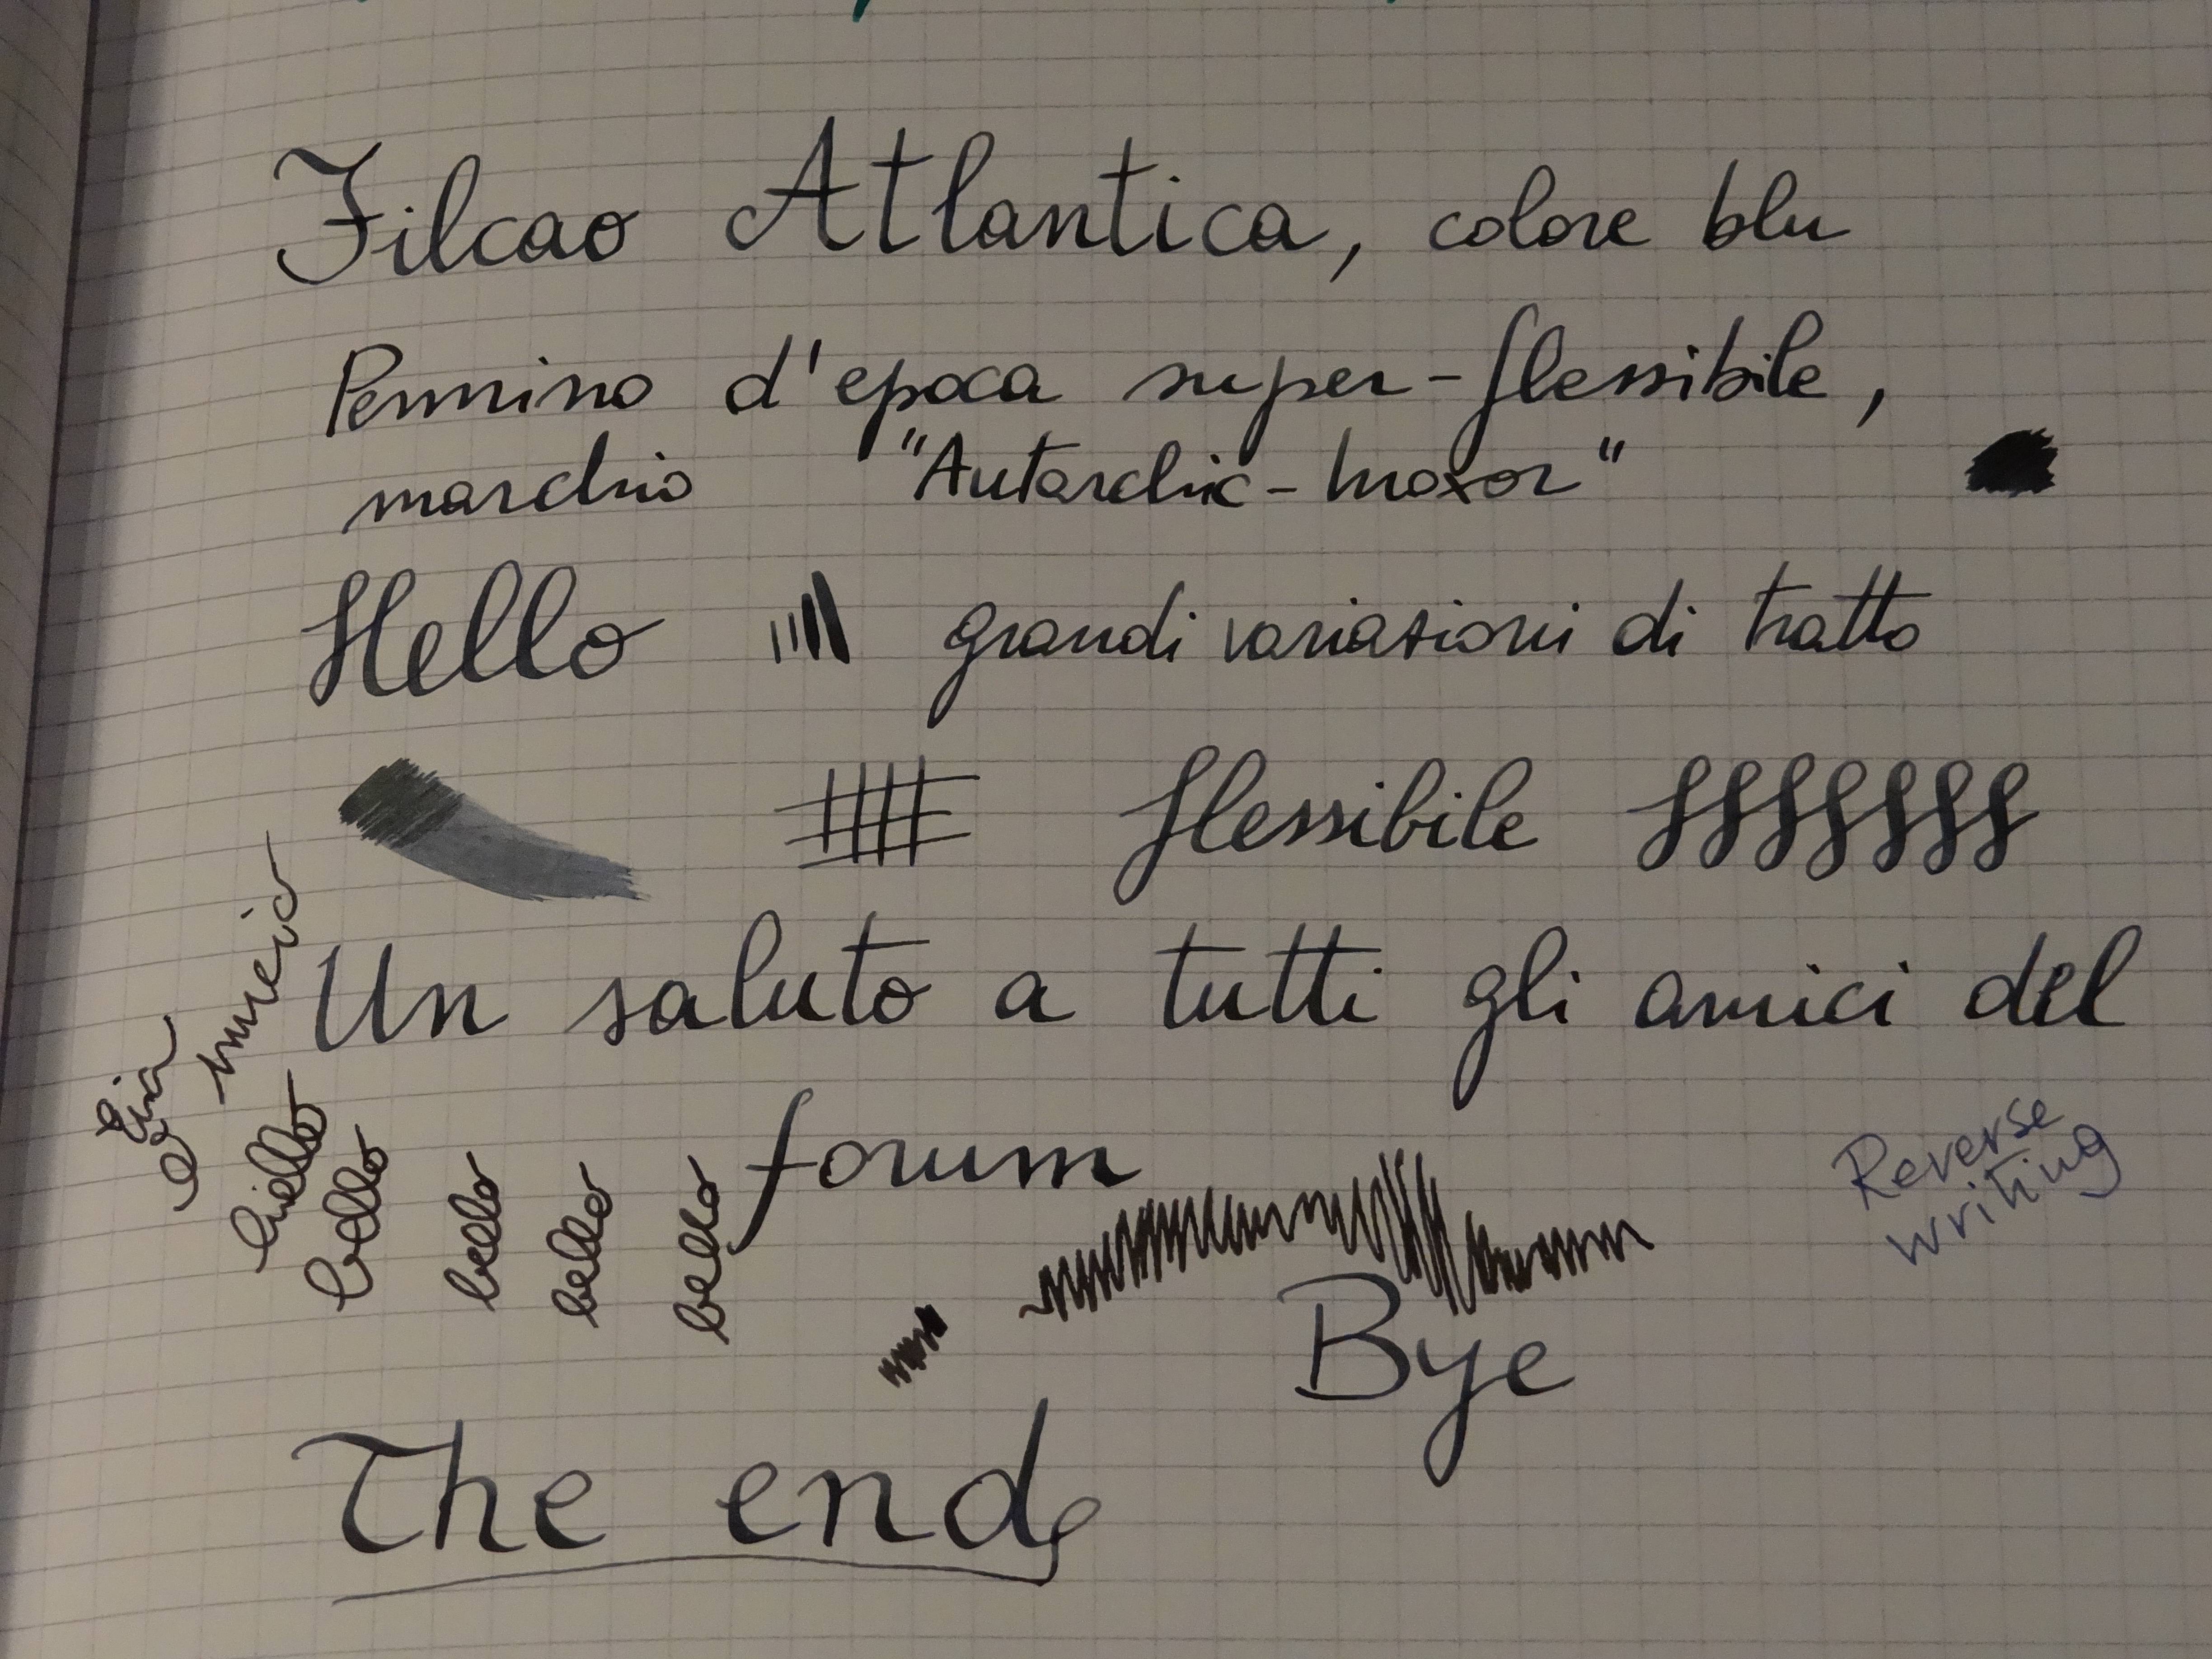 Filcao Atlantica, colore blu
Pennino d'epoca super-flessibile,
marchio "Autarchic-Inoxor"
Hello grandi variazioni di tratto
flessibile
Un saluto a tutti gli amici del
forum
bello
bello
bello
bello
Reverse
writing
Bye
The end